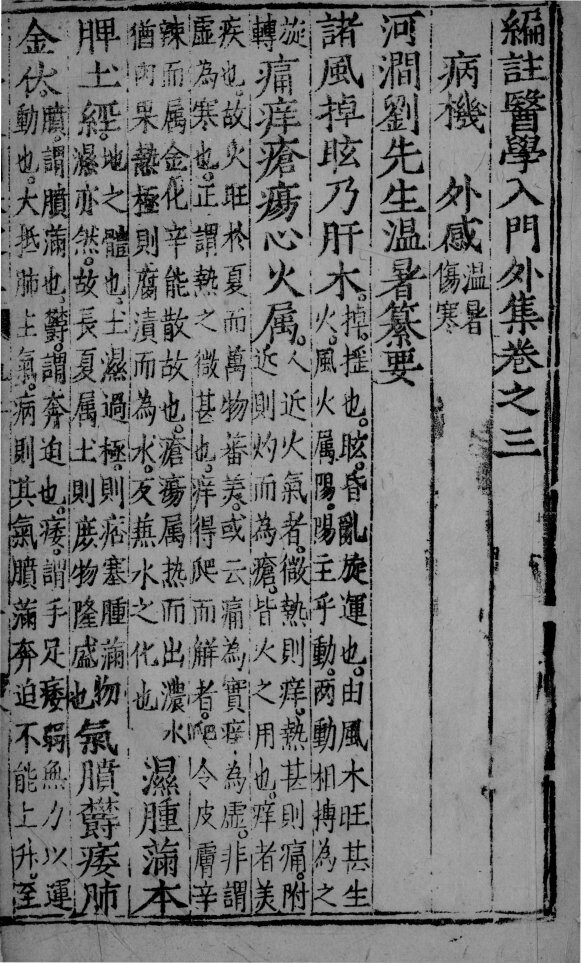 編註醫學入門外集卷之三
病機 外感 溫暑傷寒
河澗劉先生溫暑纂要
諸風掉眩乃肝木 掉揺也。眩昏亂旋運也。由風木旺甚生
火。風火属陽。陽主乎動。两動相摶為之
旋轉 痛痒瘡瘍心火属 人近火氣者。微熱則痒。熱甚則痛。附
近則灼而為瘡。皆火之用也。痒者美
疾也。故火旺於夏而萬物蕃美。或云痛為實痒為虛。非謂
虛為寒也。正謂熱之微甚也。痒得爬而解者。爬令皮膚辛
辣而属金化辛能散故也。瘡瘍属热而出濃水
猶肉果熱極則腐潰而為水。反兼水之化也 濕腫滿本
脾土經 地之體也。土濕過極。則痞塞腫滿物
濕亦然。故長夏属土則庻物隆盛也 氣膹欝痿肺
金伏 膹。謂膹滿也。欝。謂奔迫也。痿。謂手足痿弱無力以運
動也。大抵肺主氣。病則其氣膹滿奔迫不能上升。至